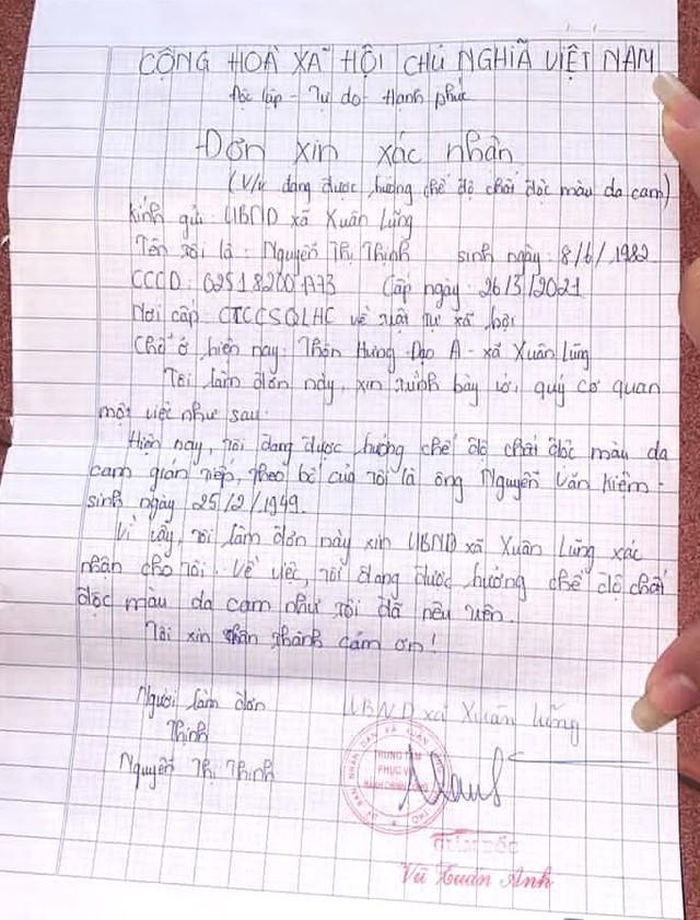 CỘNG HOÀ XÃ HỘI CHỦ NGHĨA VIỆT NAM
Độc lập - Tự do - Hạnh phúc
Đơn xin xác nhận
(V/v đang được hưởng chế độ chất độc màu da cam)
Kính gửi: UBND xã Xuân Lũng
Tên tôi là: Nguyễn Thị Thịnh sinh ngày: 8/6/1982
CCCD: Cấp ngày: 26/3/2021
Nơi cấp: CTCCSQLHC về trật tự xã hội
Chỗ ở hiện nay: Thôn Hưng Đạo A - xã Xuân Lũng
Tôi làm đơn này, xin trình bày với quý cơ quan
một việc như sau:
Hiện nay, tôi đang được hưởng chế độ chất độc màu da
cam gián tiếp, theo bố của tôi là ông Nguyễn Văn Kiểm -
sinh ngày 25/2/1949.
Vì vậy, tôi làm đơn này xin UBND xã Xuân Lũng xác
nhận cho tôi. Về việc, tôi đang được hưởng chế độ chất
độc màu da cam như tôi đã nêu trên.
Tôi xin chân thành cám ơn!
Người làm đơn UBND xã Xuân Lũng
Thịnh
Nguyễn Thị Thịnh
TRUNG TÂM
PHỤC VỤ
HÀNH CHÍNH CÔNG
GIÁM ĐỐC
Vũ Tuấn Anh